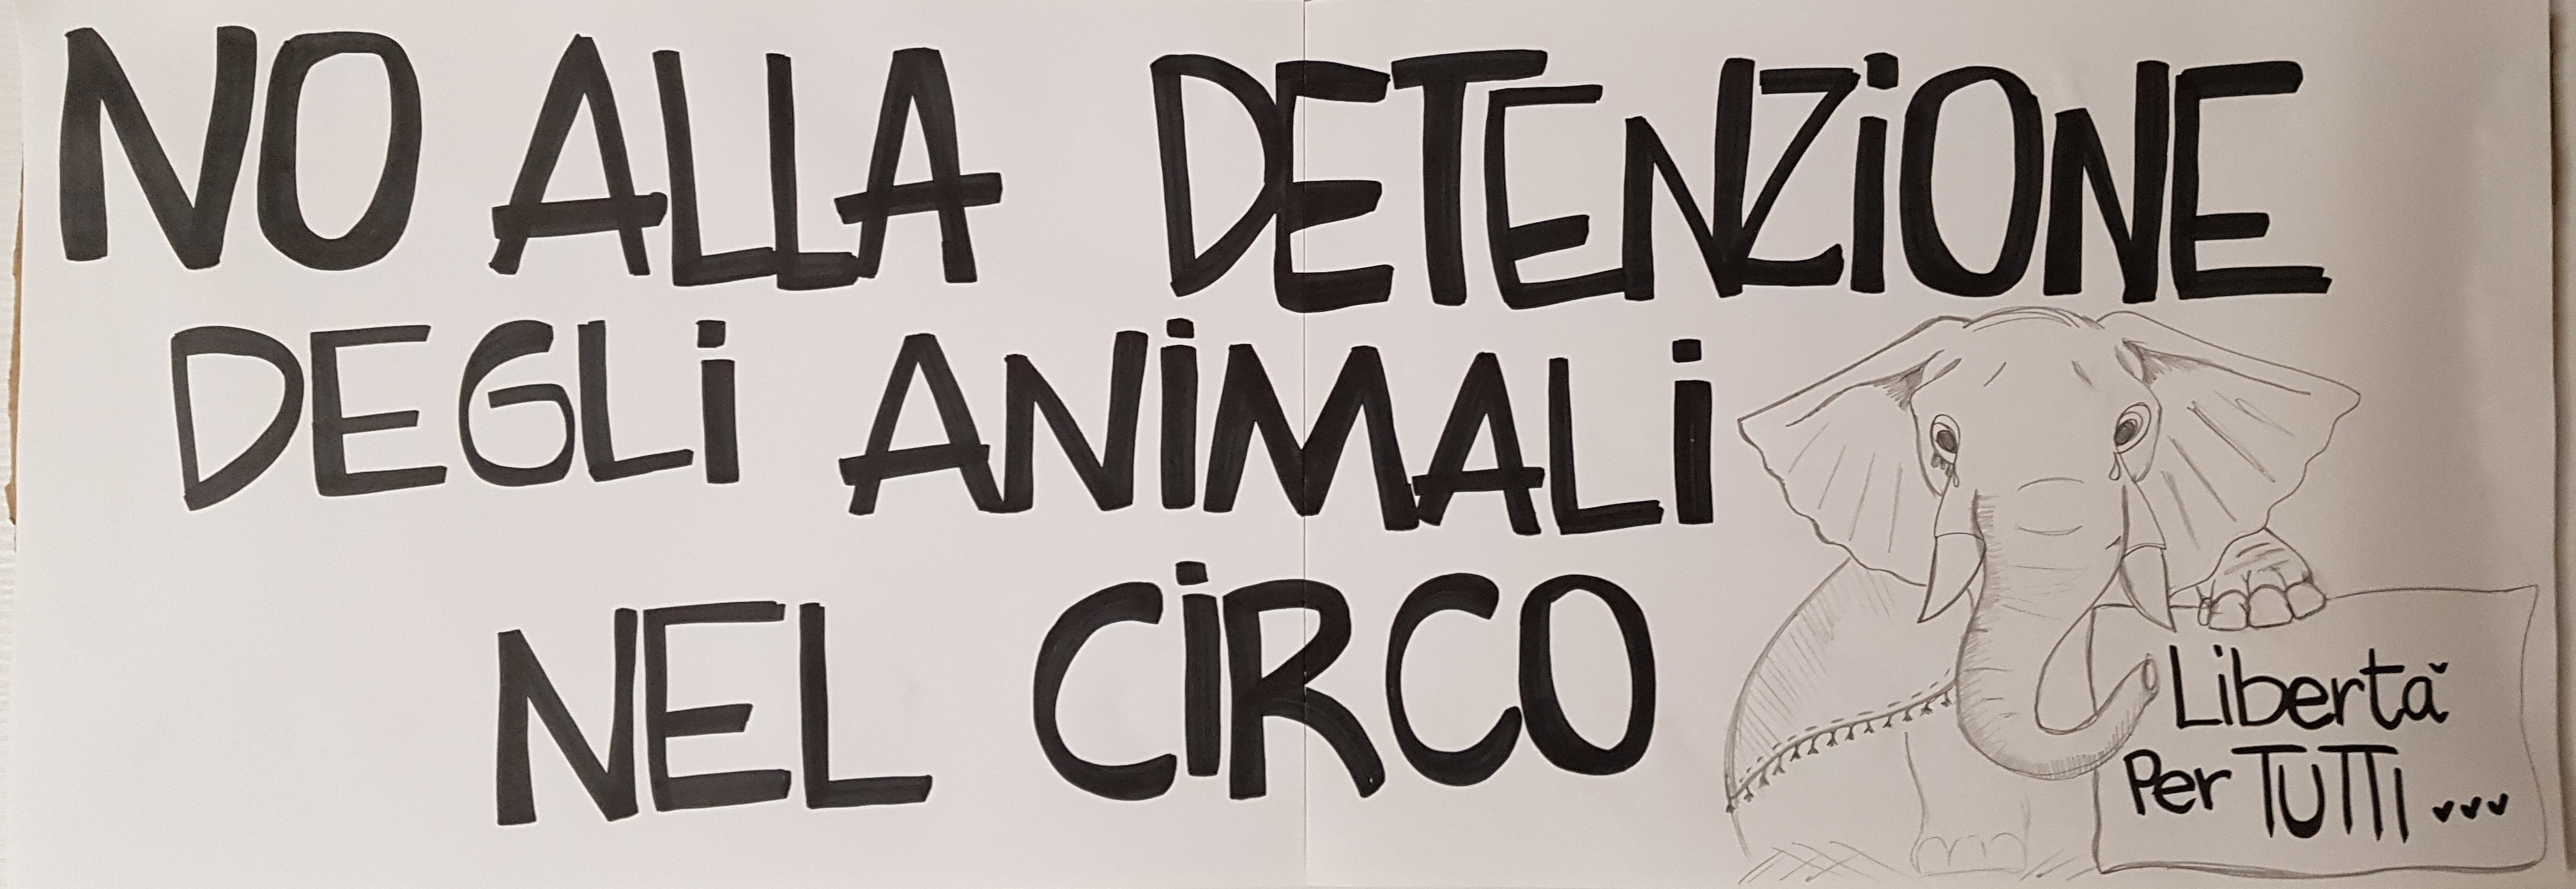 NO ALLA DETENZIONE
DEGLI ANIMALI
NEL CIRCO
Libertà
Per TUTTI...